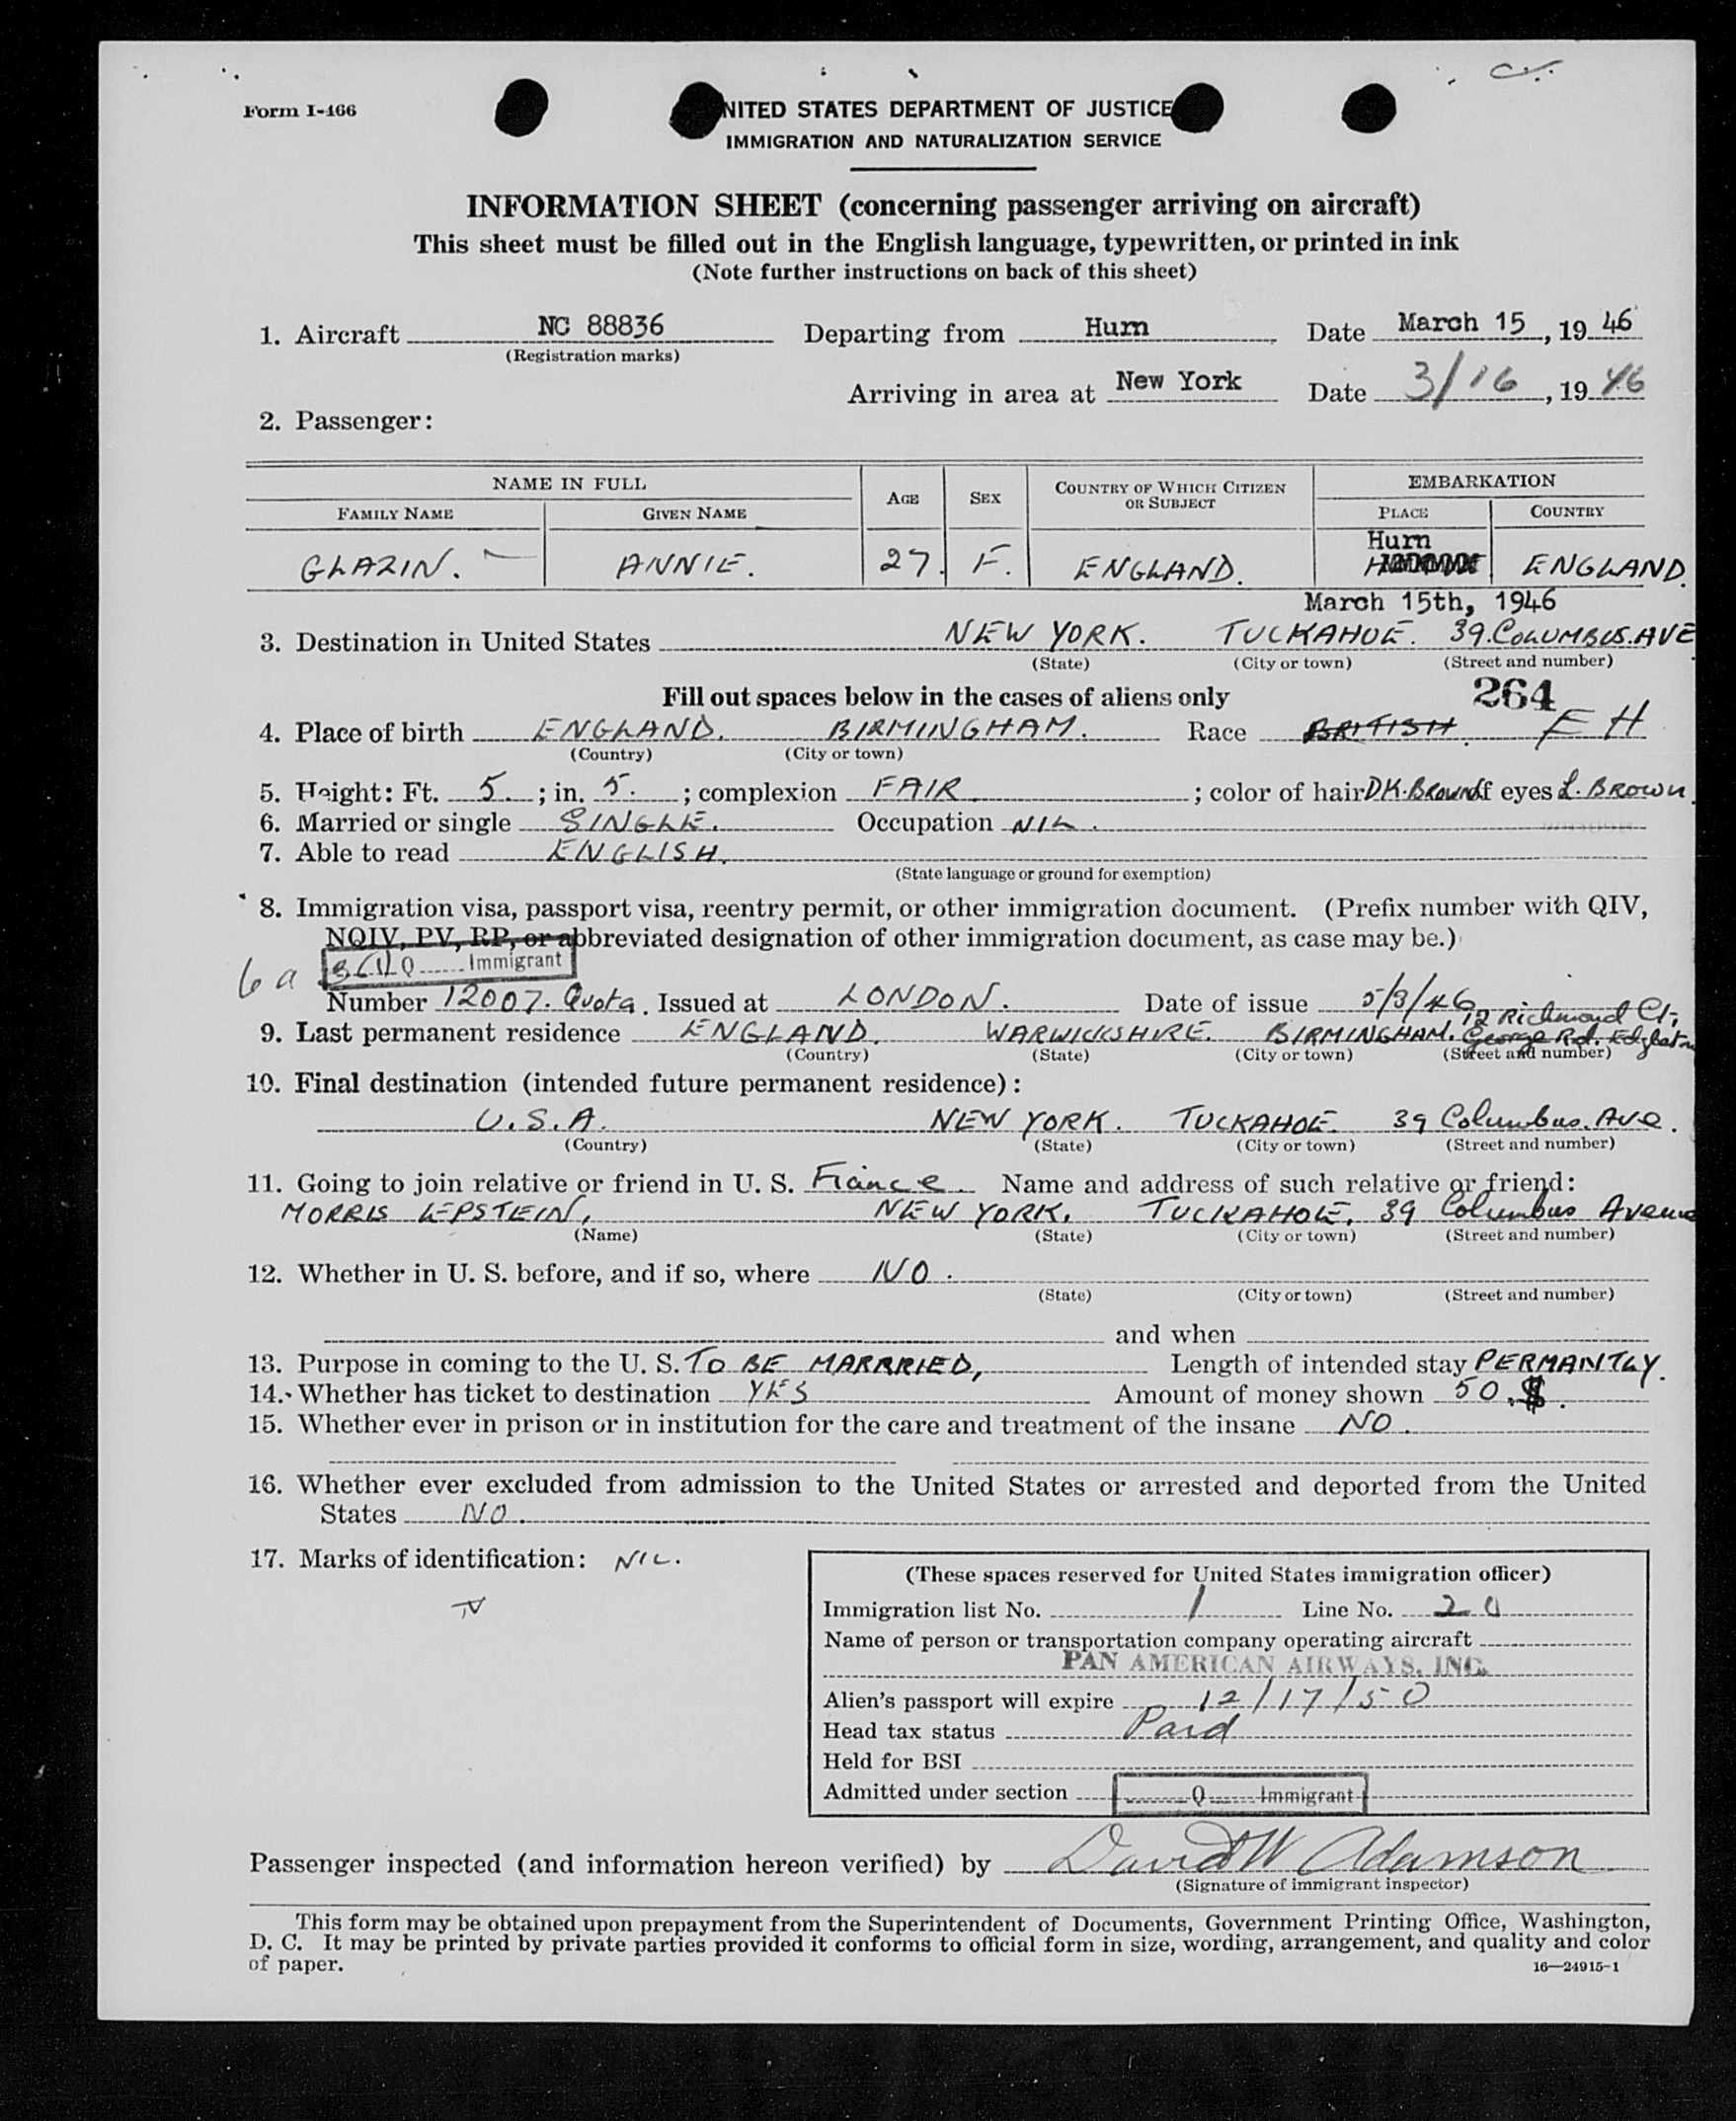 Form I-466
UNITED STATES DEPARTMENT OF JUSTICE
IMMIGRATION AND NATURALIZATION SERVICE
INFORMATION SHEET (concerning passenger arriving on aircraft)
This sheet must be filled out in the English language, typewritten, or printed in ink
(Note further instructions on back of this sheet)
1. Aircraft NC 88836 Departing from Hurn Date March 15, 19 46
(Registration marks)
Arriving in area at New York Date 3/16, 19 46
2. Passenger:
NAME IN FULL AGE SEX COUNTRY OF WHICH CITIZEN OR SUBJECT EMBARKATION
FAMILY NAME GIVEN NAME PLACE COUNTRY
Hurn
GLAZIN. ANNIE. 27. F. ENGLAND. ENGLAND.
March 15th, 1946
3. Destination in United States NEW YORK. TUCKAHOE. 39. COLUMBUS. AVE
(State) (City or town) (Street and number)
Fill out spaces below in the cases of aliens only 264
4. Place of birth ENGLAND. BIRMINGHAM. Race BRITISH. E H
(Country) (City or town)
5. Height: Ft. 5. ; in. 5. ; complexion FAIR ; color of hair DK. BROWN of eyes L. BROWN.
6. Married or single SINGLE. Occupation NIL.
7. Able to read ENGLISH.
(State language or ground for exemption)
8. Immigration visa, passport visa, reentry permit, or other immigration document. (Prefix number with QIV,
NQIV, PV, RP, or abbreviated designation of other immigration document, as case may be.)
6 a Q Immigrant
Number 12007. Quota. Issued at LONDON. Date of issue 5/3/46
12 Richmond Ct,
9. Last permanent residence ENGLAND. WARWICKSHIRE. BIRMINGHAM. George Rd. Edgbaston
(Country) (State) (City or town) (Street and number)
10. Final destination (intended future permanent residence):
U.S.A. NEW YORK. TUCKAHOE. 39 Columbus. Ave.
(Country) (State) (City or town) (Street and number)
11. Going to join relative or friend in U. S. Fiance. Name and address of such relative or friend:
MORRIS EPSTEIN, NEW YORK. TUCKAHOE. 39 Columbus Avenue
(Name) (State) (City or town) (Street and number)
12. Whether in U. S. before, and if so, where NO.
(State) (City or town) (Street and number)
and when
13. Purpose in coming to the U. S. TO BE MARRRIED, Length of intended stay PERMANTLY.
14. Whether has ticket to destination YES Amount of money shown 50. $.
15. Whether ever in prison or in institution for the care and treatment of the insane NO.
16. Whether ever excluded from admission to the United States or arrested and deported from the United
States NO.
17. Marks of identification: NIL.
(These spaces reserved for United States immigration officer)
Immigration list No. 1 Line No. 20
Name of person or transportation company operating aircraft
PAN AMERICAN AIRWAYS, INC.
Alien's passport will expire 12/17/50
Head tax status Paid
Held for BSI
Admitted under section Q Immigrant
Passenger inspected (and information hereon verified) by David W Adamson
(Signature of immigrant inspector)
This form may be obtained upon prepayment from the Superintendent of Documents, Government Printing Office, Washington,
D. C. It may be printed by private parties provided it conforms to official form in size, wording, arrangement, and quality and color
of paper. 16—24915-1